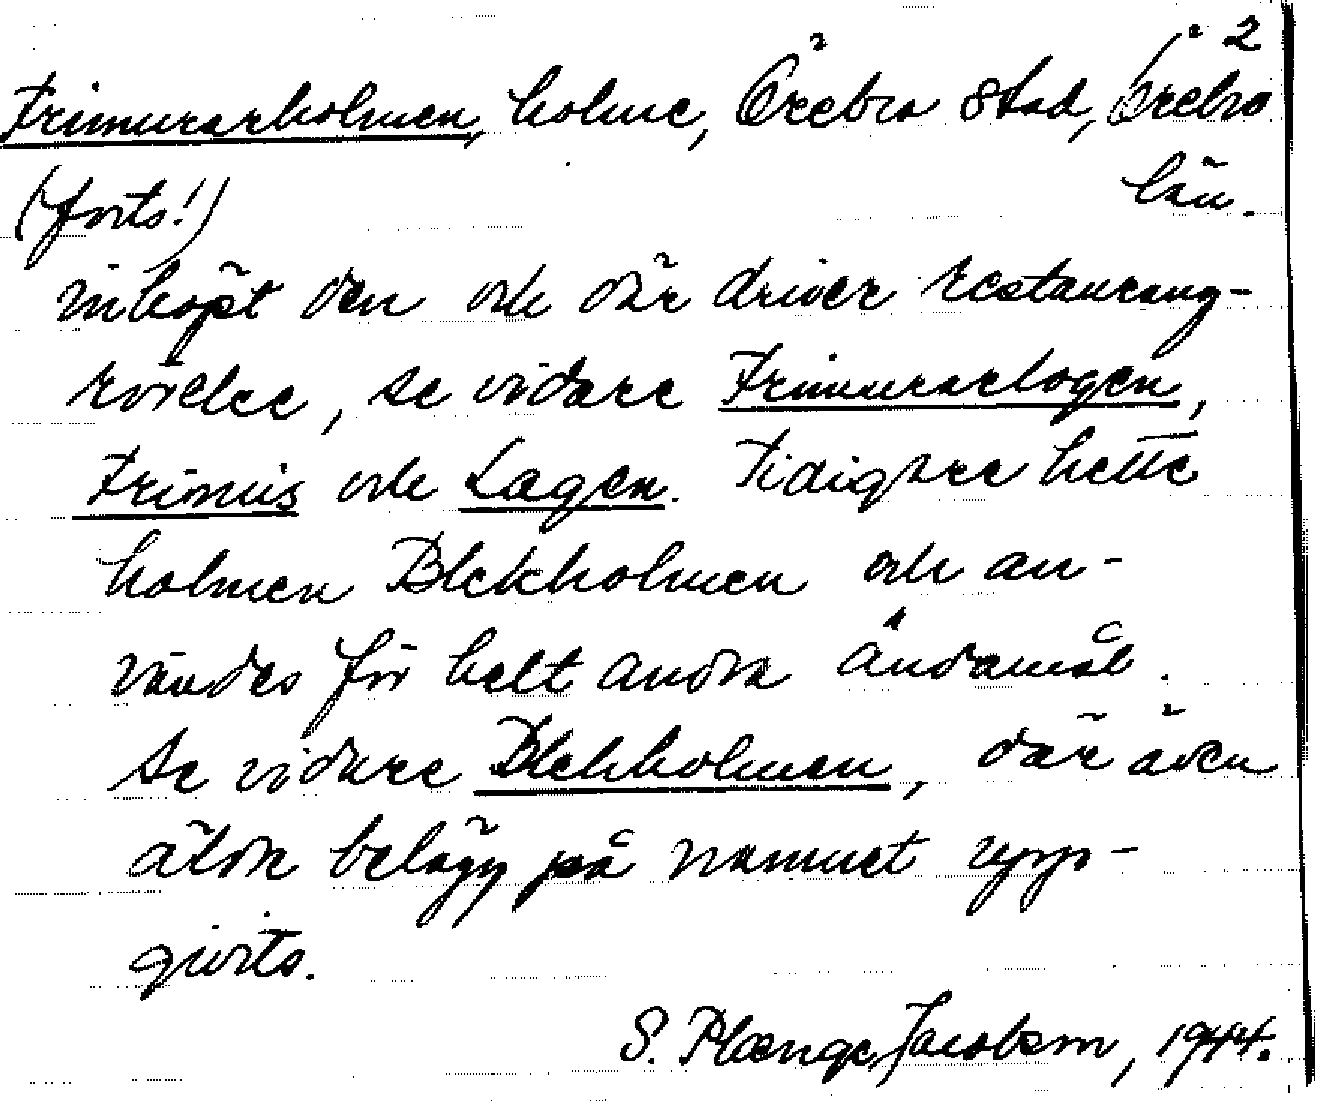 2
Frimurarholmen, holme, Örebro stad, Örebro
(forts!) län.
inköpt den och där driver restaurang-
rörelse, se vidare Frimurarlogen,
Frimis och Lagen. Tidigare hette
holmen Bleckholmen och an-
vändes för helt andra ändamål.
Se vidare Bleckholmen, där även
äldre belägg på namnet upp-
givits.
S. Plænge Jacobson, 1944.